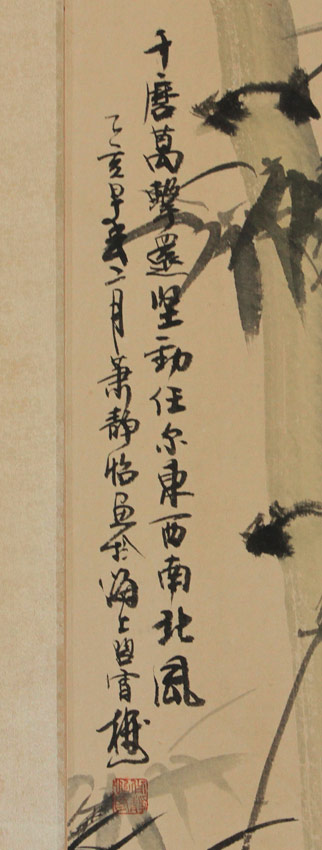 千磨萬擊還坚勁任尔東西南北風
乙亥早春二月蕭静怡画於海上碧霄樓